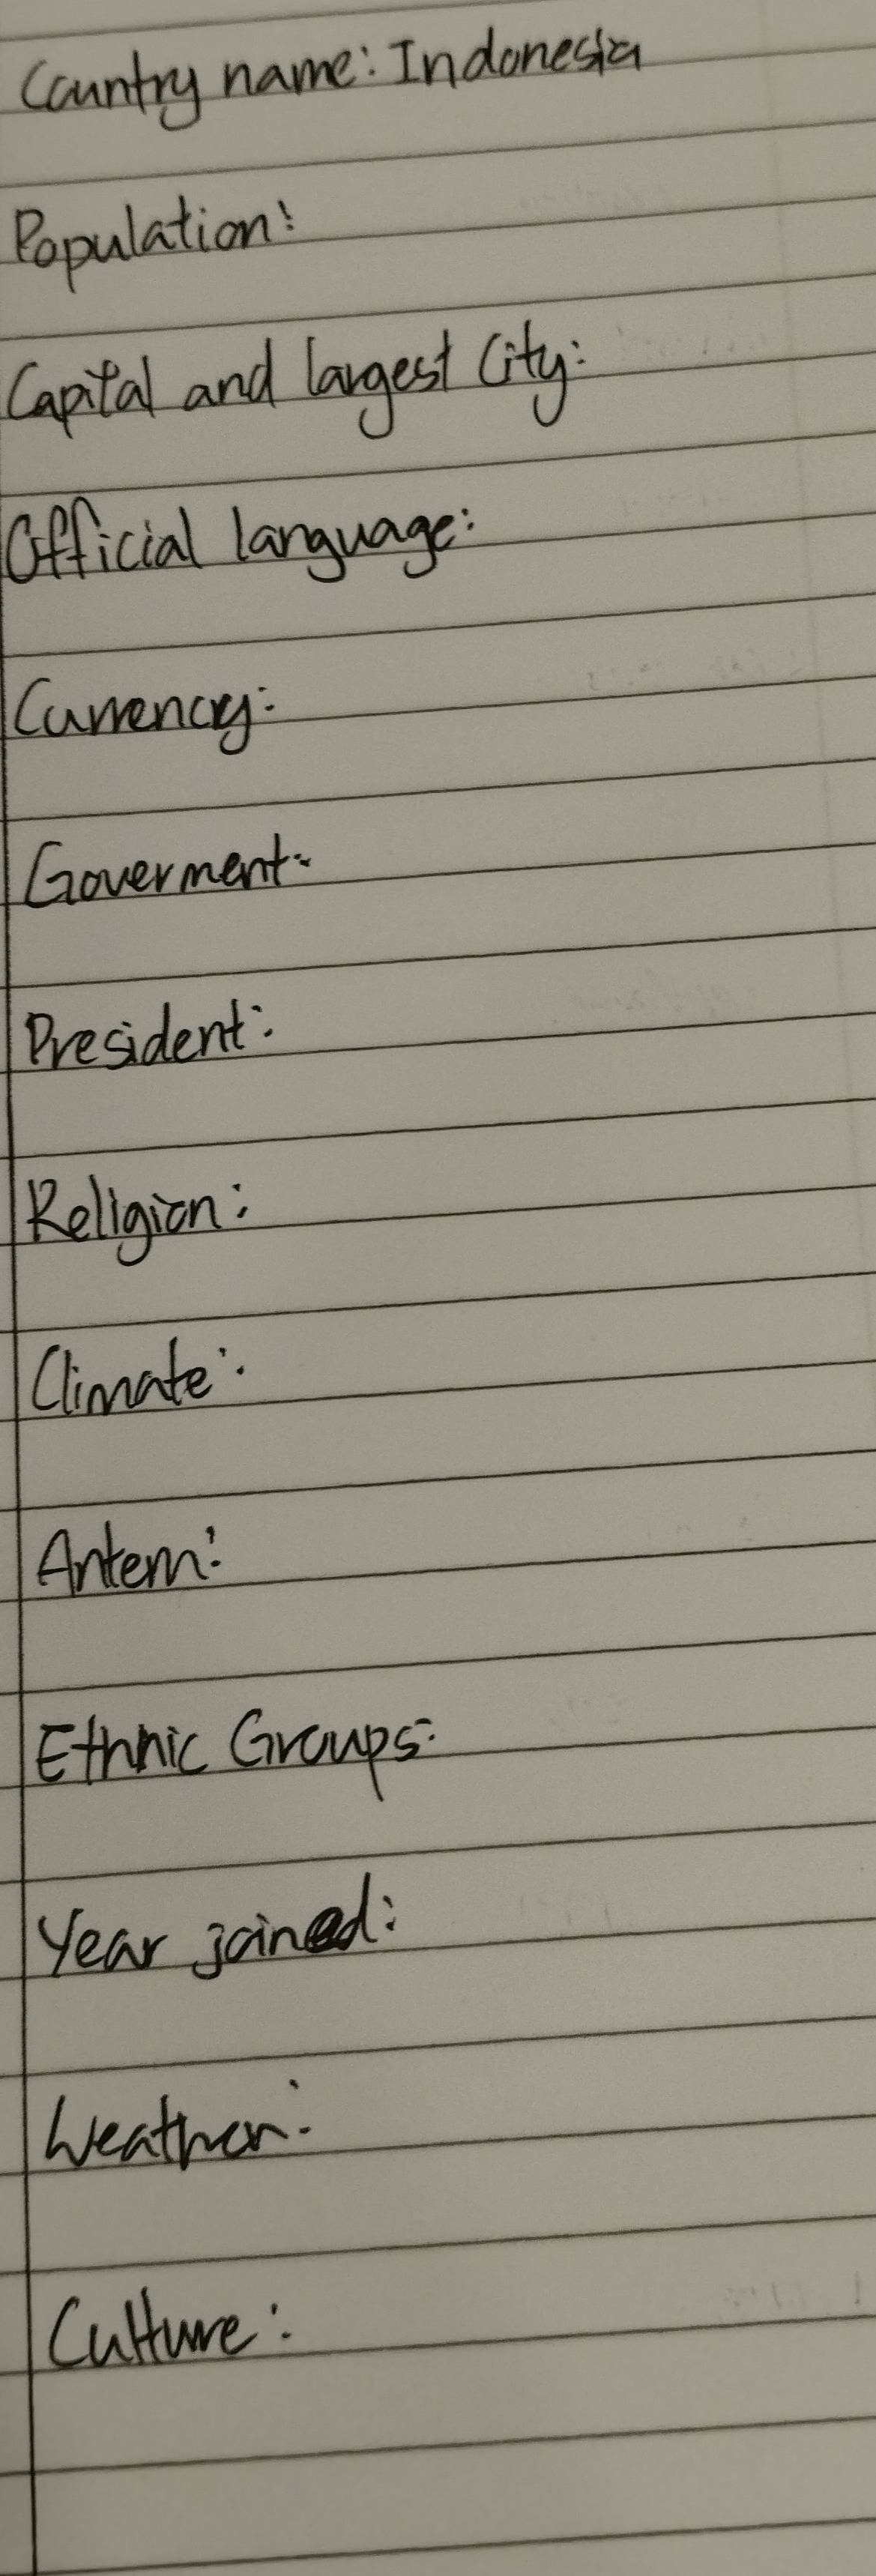 Country name: Indonesia
Population:
Capital and largest City:
Official language:
Currency:
Goverment:
President:
Religion:
Climate:
Antem:
Ethnic Groups:
Year joined:
Weather:
Culture: